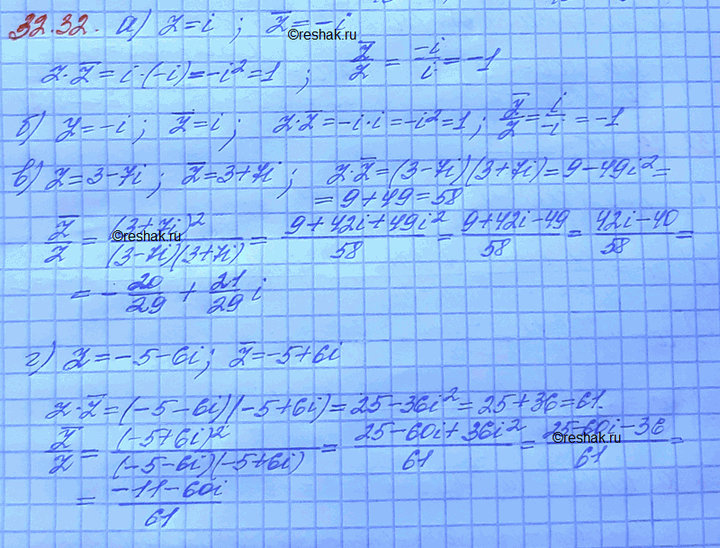 32.32. а) z = i ; z̅ = -i
©reshak.ru
z·z̅ = i·(-i) = -i² = 1 ; z̅/z = -i/i = -1
б) z = -i ; z̅ = i ; z·z̅ = -i·i = -i² = 1 ; z̅/z = i/-i = -1
в) z = 3-7i ; z̅ = 3+7i ; z·z̅ = (3-7i)(3+7i) = 9-49i² =
= 9+49 = 58
z̅/z = (3+7i)²/(3-7i)(3+7i) = 9+42i+49i²/58 = 9+42i-49/58 = 42i-40/58 =
©reshak.ru
= -20/29 + 21/29 i
г) z = -5-6i ; z̅ = -5+6i
z·z̅ = (-5-6i)(-5+6i) = 25-36i² = 25+36 = 61.
z̅/z = (-5+6i)²/(-5-6i)(-5+6i) = 25-60i+36i²/61 = 25-60i-36/61 =
©reshak.ru
= -11-60i/61